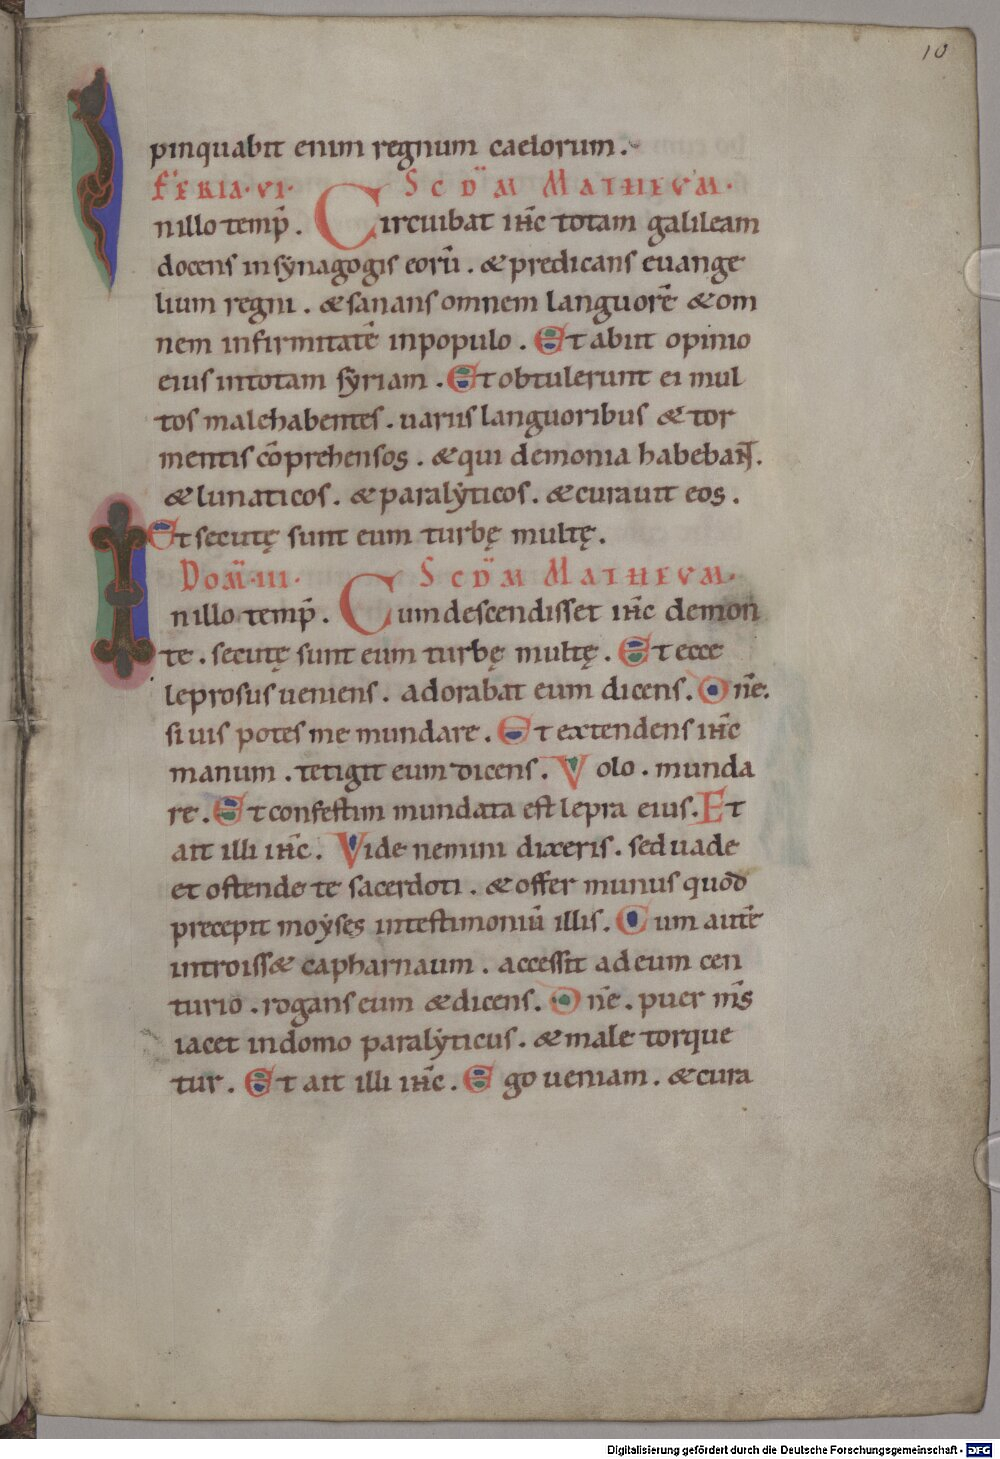 10
pinquabit enim regnum caelorum.
FERIA·VI· SCDM MATHEUM·
Inillo temp̄. Circuibat ihc̄ totam galileam
docens insynagogis eorū. & predicans euange
lium regni. & sanans omnem languorē & om
nem infirmitatē inpopulo. Et abiit opinio
eius intotam syriam. Et obtulerunt ei mul
tos malehabentes. uariis languoribus & tor
mentis cōprehensos. & qui demonia habebant.
& lunaticos. & paralẏticos. & curauit eos.
Et secutę sunt eum turbę multę.
DOM̄·III· SCDM MATHEUM·
Inillo temp̄. Cumdescendisset ihc̄ demon
te. secutę sunt eum turbę multę. Et ecce
leprosus ueniens. adorabat eum dicens. Dn̄e.
si uis potes me mundare. Et extendens ihc̄
manum. tetigit eum dicens. Volo. munda
re. Et confestim mundata est lepra eius. Et
ait illi ihc̄. Vide nemini dixeris. sed uade
et ostende te sacerdoti. & offer munus quod
precepit moẏses intestimoniū illis. Cum autē
introiss& capharnaum. accessit adeum cen
turio. rogans eum & dicens. Dn̄e. puer m̄s
iacet indomo paralẏticus. & male torque
tur. Et ait illi ihc̄. Ego ueniam. & cura
Digitalisierung gefördert durch die Deutsche Forschungsgemeinschaft - DFG